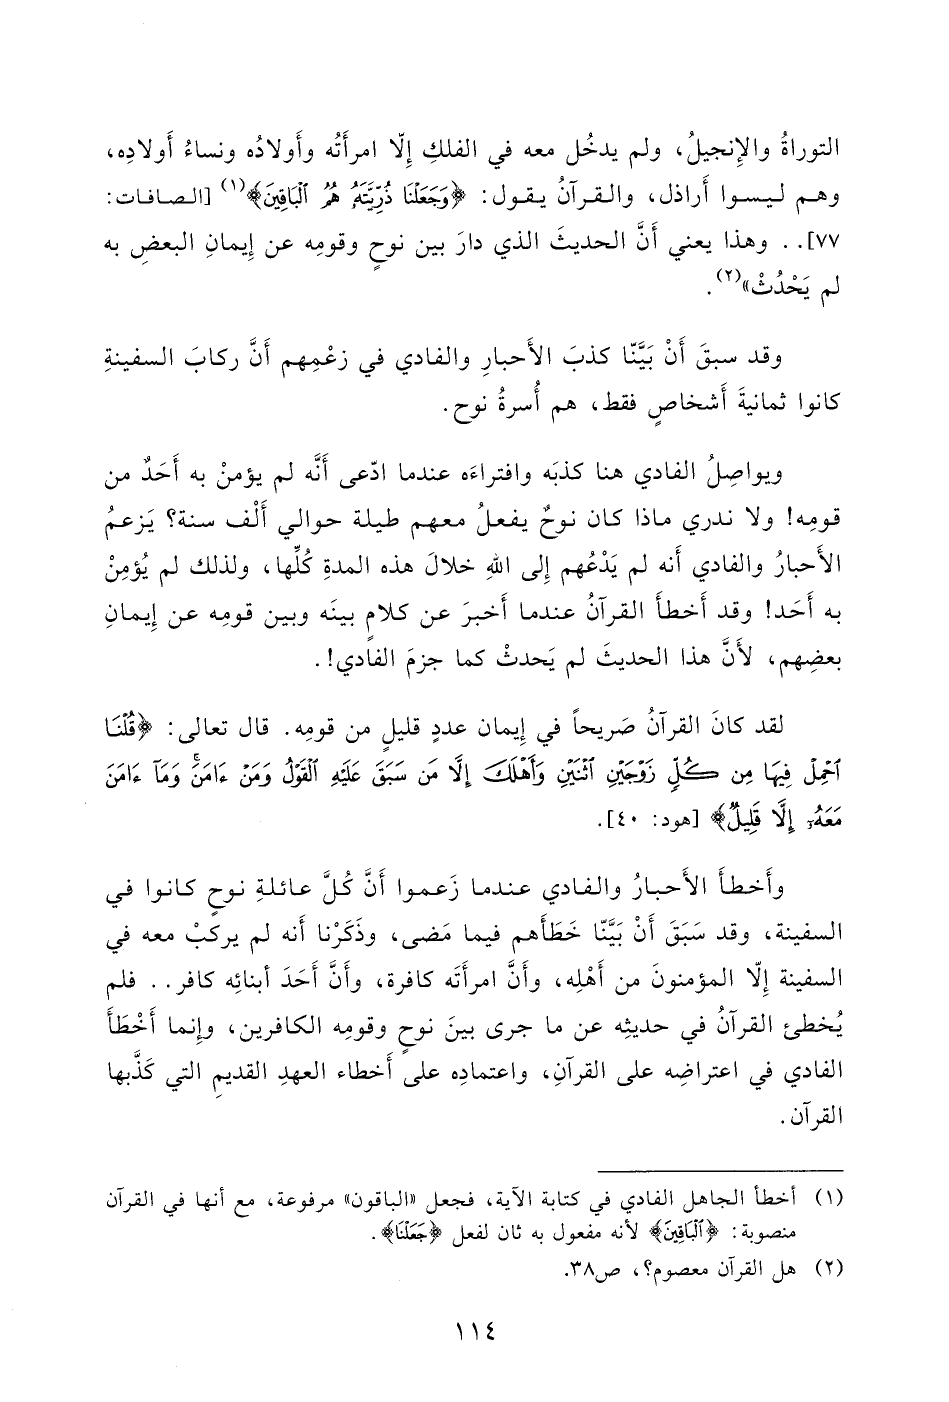 التوراةُ والإنجيلُ، ولم يدخُل معه في الفلكِ إلّا امرأتُه وأولادُه ونساءُ أولادِه،
وهم ليسوا أراذل، والقرآنُ يقول: ﴿وَجَعَلْنَا ذُرِّيَّتَهُۥ هُمُ ٱلْبَاقِينَ﴾(١) [الصافات:
٧٧].. وهذا يعني أنَّ الحديثَ الذي دارَ بين نوحٍ وقومِه عن إيمانِ البعضِ به
لم يَحْدُثْ»(٢).
وقد سبقَ أنْ بَيَّنّا كذبَ الأحبارِ والفادي في زعْمِهم أنَّ ركابَ السفينةِ
كانوا ثمانيةَ أشخاصٍ فقط، هم أُسرةُ نوح.
ويواصِلُ الفادي هنا كذبَه وافتراءَه عندما ادّعى أنَّه لم يؤمنْ به أَحَدٌ من
قومِه! ولا ندري ماذا كان نوحٌ يفعلُ معهم طيلة حوالي أَلْف سنة؟ يَزعمُ
الأحبارُ والفادي أنه لم يَدْعُهم إلى اللهِ خلالَ هذه المدةِ كُلِّها، ولذلك لم يُؤمِنْ
به أَحَد! وقد أخطأَ القرآنُ عندما أخبرَ عن كلامٍ بينَه وبين قومِه عن إيمانِ
بعضِهم، لأنَّ هذا الحديثَ لم يَحدثْ كما جزمَ الفادي!.
لقد كانَ القرآنُ صَريحاً في إيمان عددٍ قليلٍ من قومِه. قال تعالى: ﴿قُلْنَا
ٱحْمِلْ فِيهَا مِن كُلٍّ زَوْجَيْنِ ٱثْنَيْنِ وَأَهْلَكَ إِلَّا مَن سَبَقَ عَلَيْهِ ٱلْقَوْلُ وَمَنْ ءَامَنَ ۚ وَمَآ ءَامَنَ
مَعَهُۥٓ إِلَّا قَلِيلٌ﴾ [هود: ٤٠].
وأخطأَ الأحبارُ والفادي عندما زَعموا أنَّ كُلَّ عائلةِ نوحٍ كانوا في
السفينة، وقد سَبَقَ أنْ بَيَّنّا خَطَأَهم فيما مَضى، وذَكَرْنا أنه لم يركبْ معه في
السفينة إلّا المؤمنونَ من أَهْلِه، وأنَّ امرأتَه كافرة، وأنَّ أَحَدَ أبنائِه كافر.. فلم
يُخطئ القرآنُ في حديثِه عن ما جرى بينَ نوحٍ وقومِه الكافرين، وإنما أَخْطَأَ
الفادي في اعتراضِه على القرآنِ، واعتمادِه على أخطاء العهدِ القديمِ التي كَذَّبها
القرآن.
(١) أخطأ الجاهل الفادي في كتابة الآية، فجعل «الباقون» مرفوعة، مع أنها في القرآن
منصوبة: ﴿ٱلْبَاقِينَ﴾ لأنه مفعول به ثان لفعل ﴿جَعَلْنَا﴾.
(٢) هل القرآن معصوم؟، ص٣٨.
١١٤